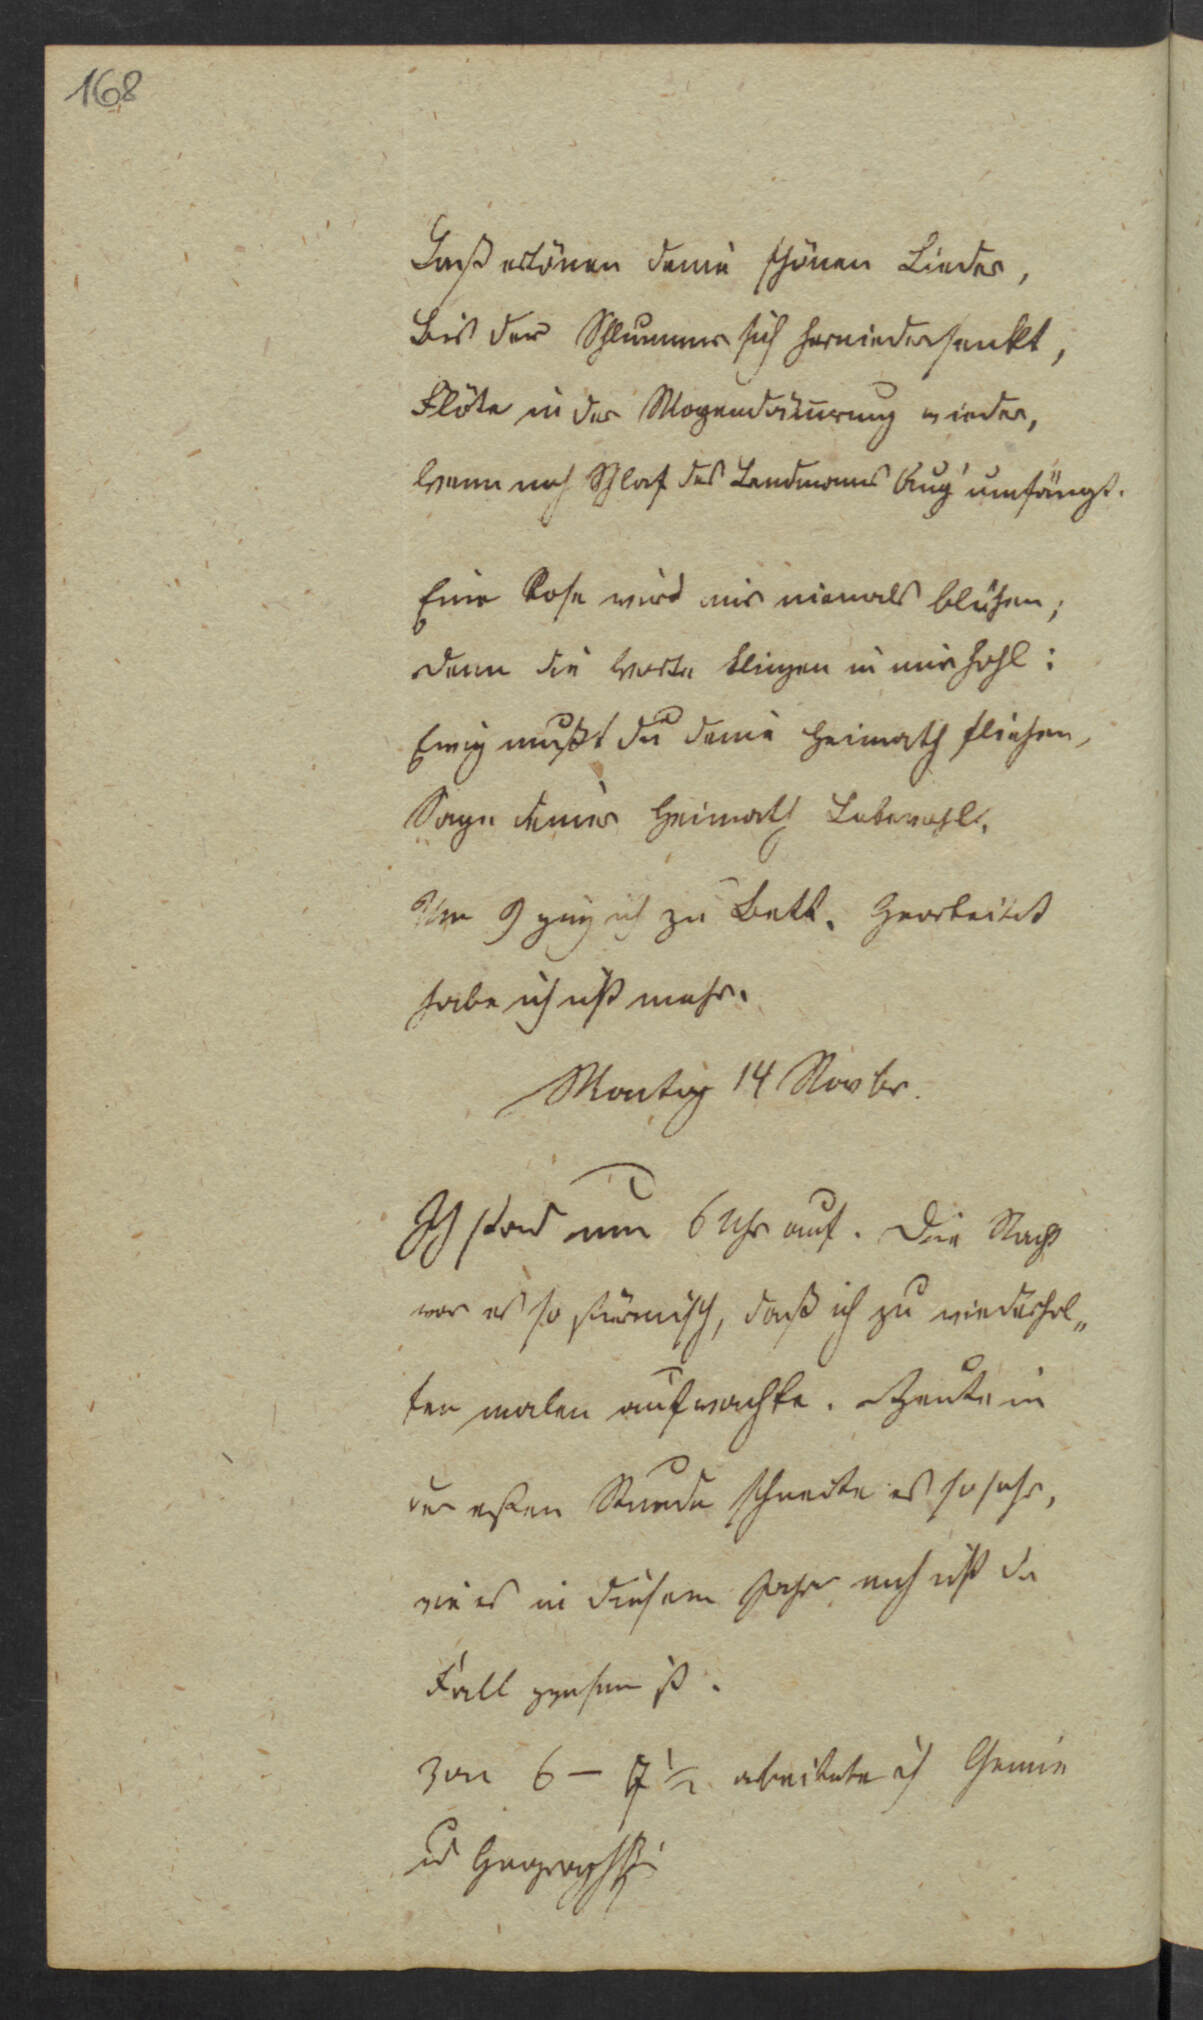 168
Laß ertönen deine schönen Lieder,
Bis der Schlummer sich herniedersenkt,
Flöte in der Morgendämmrung wieder,
Wenn noch Schlaf des Landmanns Aug' umfängt.
Eine Rose wird mir niemals blühen;
Denn die Worte klingen in mir hohl:
Ewig mußt du deine Heimath fliehen,
Sage deiner Heimath Lebewohl.
Um 9 ging ich zu Bett. Gearbeitet
habe ich nicht mehr.
Montag 14 Novbr.
Ich stand um 6 Uhr auf. Die Nacht
war es so stürmisch, daß ich zu wiederhol„
ten malen aufwachte. Heute in
der ersten Stunde schneite es so sehr,
wie es in diesem Jahre noch nicht der
Fall gewesen ist.
Von 6 – 7 1/2 arbeitete ich Chemie
und Geographie